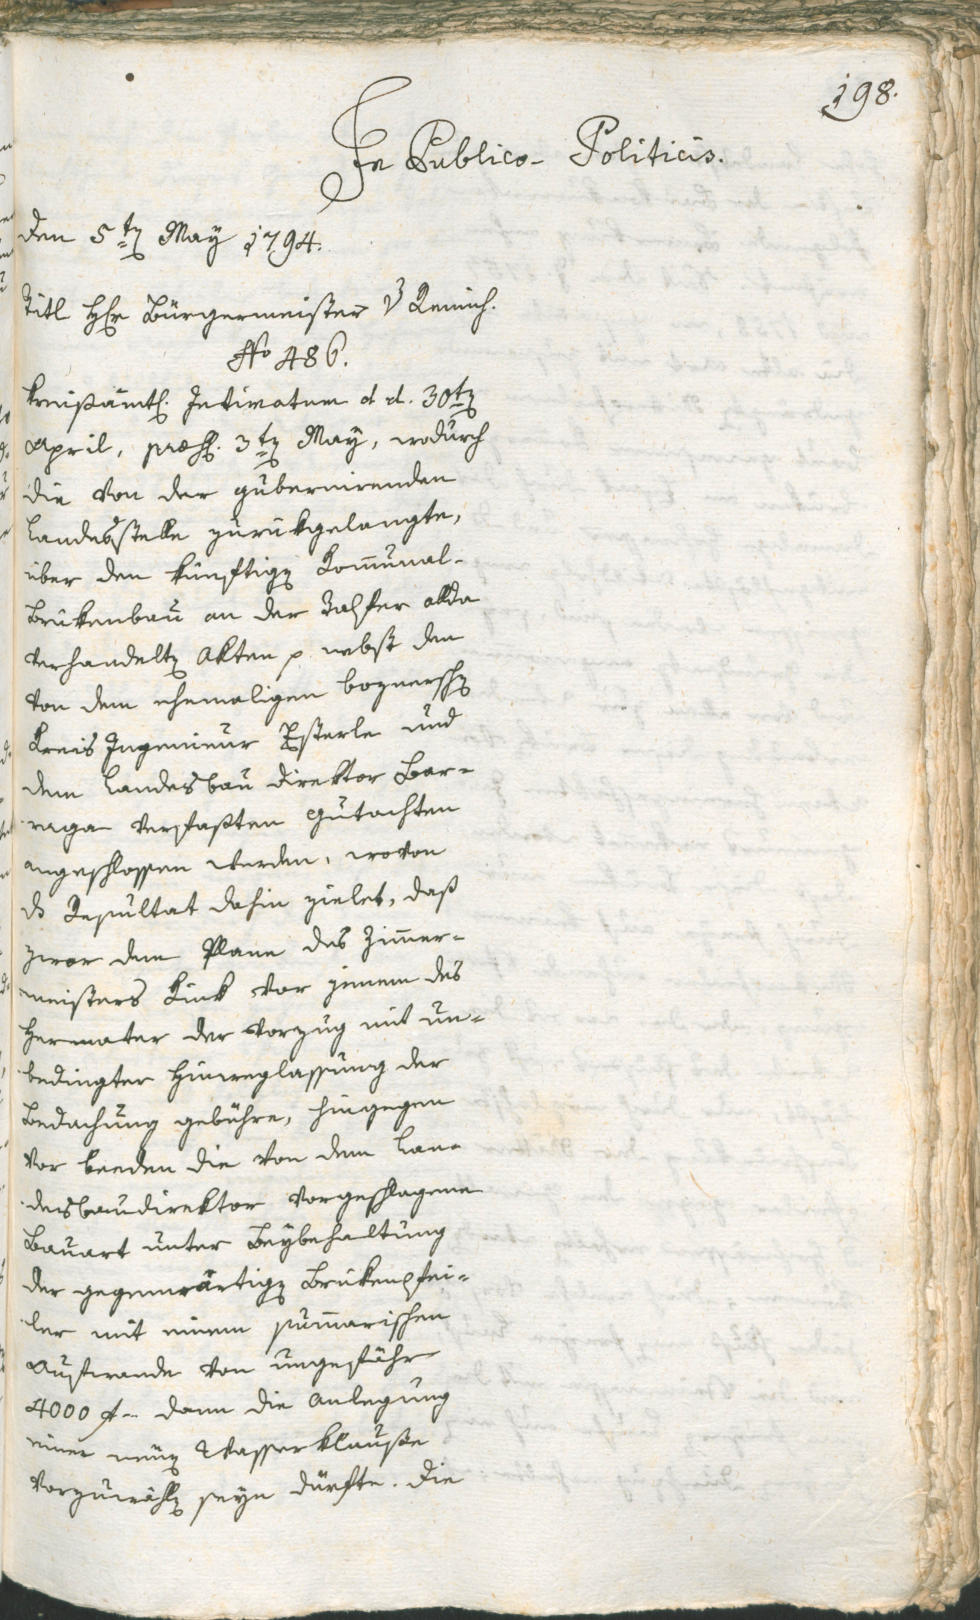 198.
In Publico-Politicis.
den 5ten May 1794.
Titl Hr Bürgermeister v Remich.
No 486.
kreisämtl. Intimatum d. d. 30ten
April, præs. 3ten May, wodurch
die von der gubernirenden
Landesstelle zurükgelangte,
über den künftigen Kommunal-
brükenbau an der Talfer allda
verhandelten Akten p. nebst den
von dem ehemaligen boznerschen
Kreis Ingenieur Esterle und
dem Landesbau direktor Bar-
raga verfaßten Gutachten
angeschlossen werden, wovon
ds Resultat dahin zielet, daß
zwar dem Plane des Zimmer-
meisters Kink vor jenem des
Hermater der Vorzug mit un-
bedingter Hinweglassung der
Bedachung gebühre, hingegen
vor beeden die von dem Lan-
desbaudirektor vorgeschlagene
Bauart unter Beybehaltung
der gegenwärtigen Brükenpfei-
ler mit einem sumarischen
Aufwande von ungefähr
4000 f- dann die Anlegung
einer neuen Wasserklauße
vorzuwählen seyn dürfte. Die